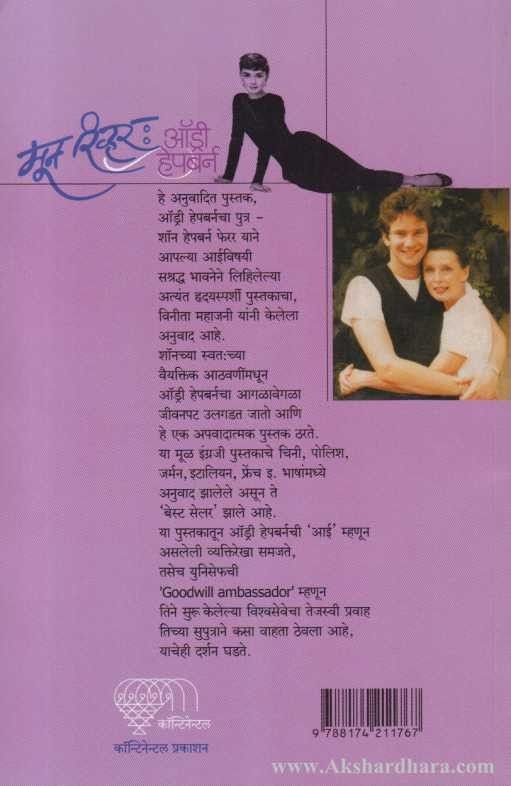 मून रिव्हर :
ऑड्री
हेपबर्न
हे अनुवादित पुस्तक,
ऑड्री हेपबर्नचा पुत्र –
शॉन हेपबर्न फेरर याने
आपल्या आईविषयी
सश्रद्ध भावनेने लिहिलेल्या
अत्यंत हृदयस्पर्शी पुस्तकाचा,
विनीता महाजनी यांनी केलेला
अनुवाद आहे.
शॉनच्या स्वतःच्या
वैयक्तिक आठवणींमधून
ऑड्री हेपबर्नचा आगळावेगळा
जीवनपट उलगडत जातो आणि
हे एक अपवादात्मक पुस्तक ठरते.
या मूळ इंग्रजी पुस्तकाचे चिनी, पोलिश,
जर्मन, इटालियन, फ्रेंच इ. भाषांमध्ये
अनुवाद झालेले असून ते
'बेस्ट सेलर' झाले आहे.
या पुस्तकातून ऑड्री हेपबर्नची 'आई' म्हणून
असलेली व्यक्तिरेखा समजते,
तसेच युनिसेफची
'Goodwill ambassador' म्हणून
तिने सुरू केलेल्या विश्वसेवेचा तेजस्वी प्रवाह
तिच्या सुपुत्राने कसा वाहता ठेवला आहे,
याचेही दर्शन घडते.
कॉन्टिनेन्टल
कॉन्टिनेन्टल प्रकाशन
9 788174 211767
www.Akshardhara.com